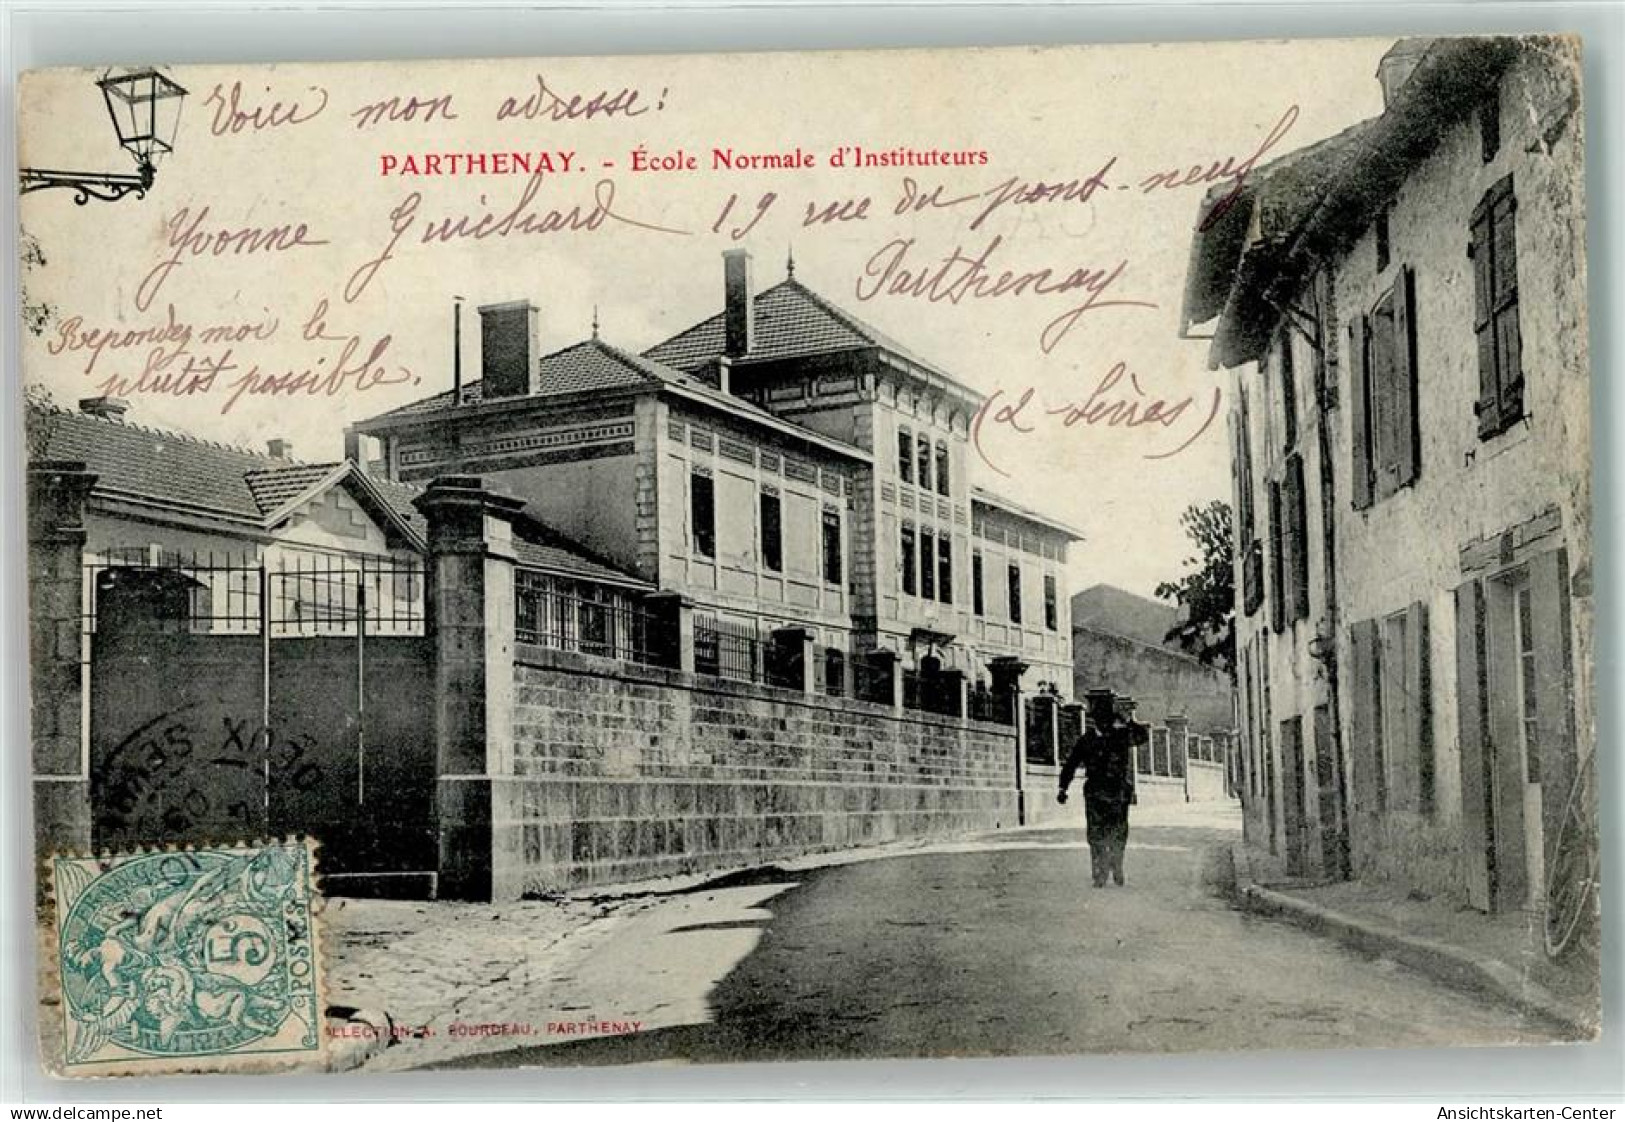 Voici mon adresse:
PARTHENAY. - École Normale d'Instituteurs
Yvonne Guichard 19 rue du pont-neuf
Parthenay
(2 Sèvres)
Repondez moi le
plutôt possible.
DEUX SEVRES
5c
POSTES
COLLECTION A. BOURDEAU, PARTHENAY
www.delcampe.net
tintin10
Ansichtskarten-Center